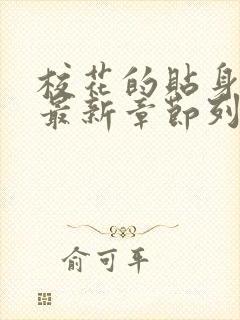 校花的貼身
最新章節列
俞可平